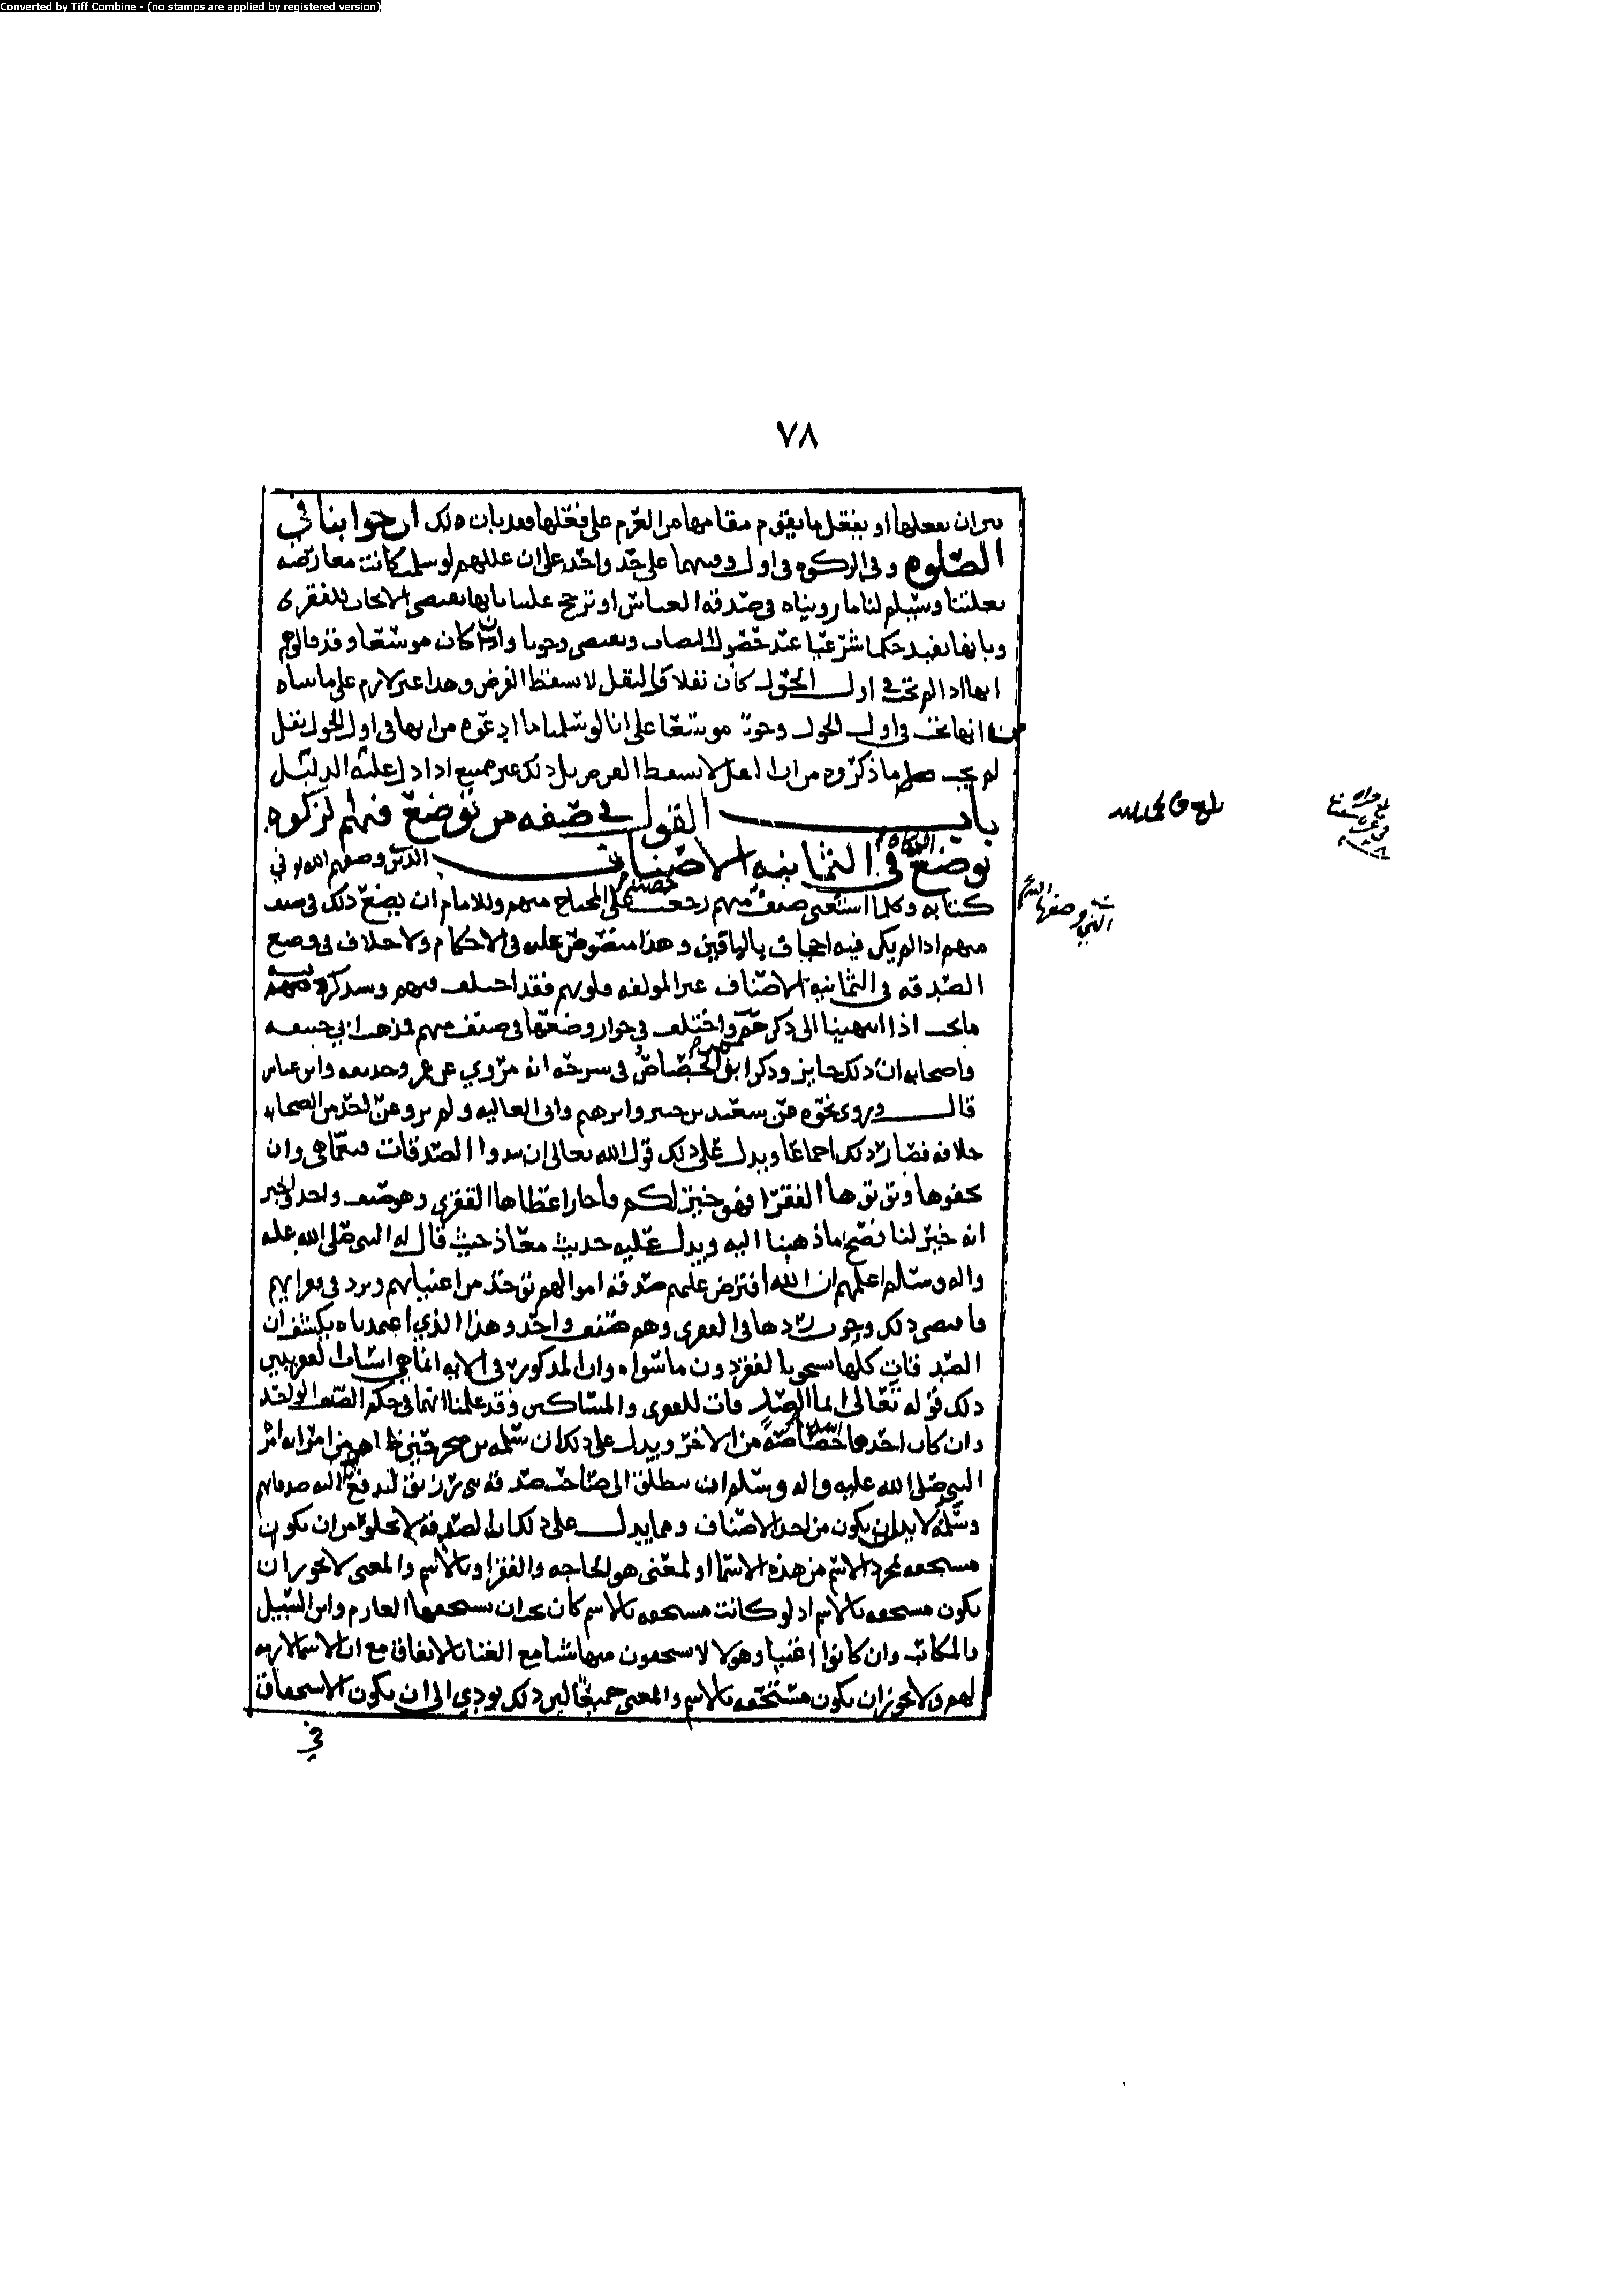 Converted by Tiff Combine - (no stamps are applied by registered version)
٧٨
بين ان يفعلها او يفعل ما يقوم مقامها من العزم على فعلها فقد بان ذلك ان جوابنا في
الصلوه وفي الزكوه في اول وقتهما على حد واحد على ان عللهم لو سلمت كانت معارضه
بعلتنا وتسلم لنا ما رويناه في صدقه العباس او ترجح علينا بانها تقتضي الايجاب للفقرى
وبانها تفيد حكما شرعيا عند حصول النصاب وتقتضي وجوبا وان كان موسعا وقد قالوا هم
انها اذا لم تجب في اول الحول كان نفلا والنفل لا يسقط الفرض وهذا غير لازم على ما بيناه
من انها تجب في اول الحول وجوبا موسعا على انا لو سلمنا ما ادعوه من انها في اول الحول نفل
لم يجب ما ذكروه من ان النفل لا يسقط الفرض بل ذلك غير ممتنع اذا دل عليه الدليل
باب القول في صفه من توضع فيهم الزكوه
توضع الزكاة في الثمانيه الاصناف الذين وصفهم الله في
كتابه وكلما استغنى صنف منهم رجعت حصتهم على المحتاج منهم وللامام ان يضع ذلك في صنف
منهم اذا لم يكن فيه اجحاف بالباقين وهذا منصوص عليه في الاحكام ولا خلاف في وضع
الصدقه في الثمانيه الاصناف غير المولفه قلوبهم فقد اختلف فيهم وسنذكره
ما يجب اذا انتهينا الى ذكرهم واختلف في جواز وضعها في صنف منهم فذهب ابي حنيفه
واصحابه ان ذلك جايز وذكر ابو بكر الجصاص في شرحه انه مروي عن عمر وحذيفه وابن عباس
قال وروى نحوه عن سعيد بن جبير وابرهيم وابي العاليه ولم يرو عن احد من الصحابه
خلافه فصار ذلك اجماعا ويدل على ذلك قول الله تعالى ان تبدوا الصدقات فنعما هي وان
تخفوها وتوتوها الفقرا فهو خير لكم فاجاز اعطاها الفقرى وهو صنف واحد واخبر
انه خير لنا فصح ما ذهبنا اليه ويدل عليه حديث معاذ حيث قال له النبي صلى الله عليه
واله وسلم اعلمهم ان الله افترض عليهم صدقه اموالهم توخذ من اغنيائهم وترد في فقرائهم
فاقتضى ذلك وجوب ردها في الفقرى وهم صنف واحد وهذا الذي اعتمدناه يكشف ان
الصدقات كلها تستحق بالفقر دون ما سواه وان المذكور في الايه انما هي اسباب الفقر يبين
ذلك قوله تعالى انما الصدقات للفقرى والمساكين وقد علمنا انهما في حكم الصنف الواحد
وان كان احدهما اشد خصاصة من الاخر ويدل على ذلك ان سلمه بن صخر حين ظاهر من امراته امر
النبي صلى الله عليه واله وسلم ان ينطلق الى صاحب صدقه بني زريق ليدفع اليه صدقاتهم
وسلمه لا بد ان يكون من احد الاصناف ومما يدل على ذلك ان الصدقه لا تخلوا من ان يكون
مستحقه بمجرد الاسم من هذه الاسما او لمعنى هو الحاجه والفقر او بالاسم والمعنى لا يجوز ان
يكون مستحقه بالاسم اذ لو كانت مستحقه بالاسم كان يجب ان يستحقها الغارم وابن السبيل
والمكاتب وان كانوا اغنيا وهولا لا يستحقون منها شيا مع الغنا بالاتفاق مع ان الاسما لازمه
لهم ولا يجوز ان يكون مستحقه بالاسم والمعنى جميعا لان ذلك يودي الى ان يكون الاستحقاق
في